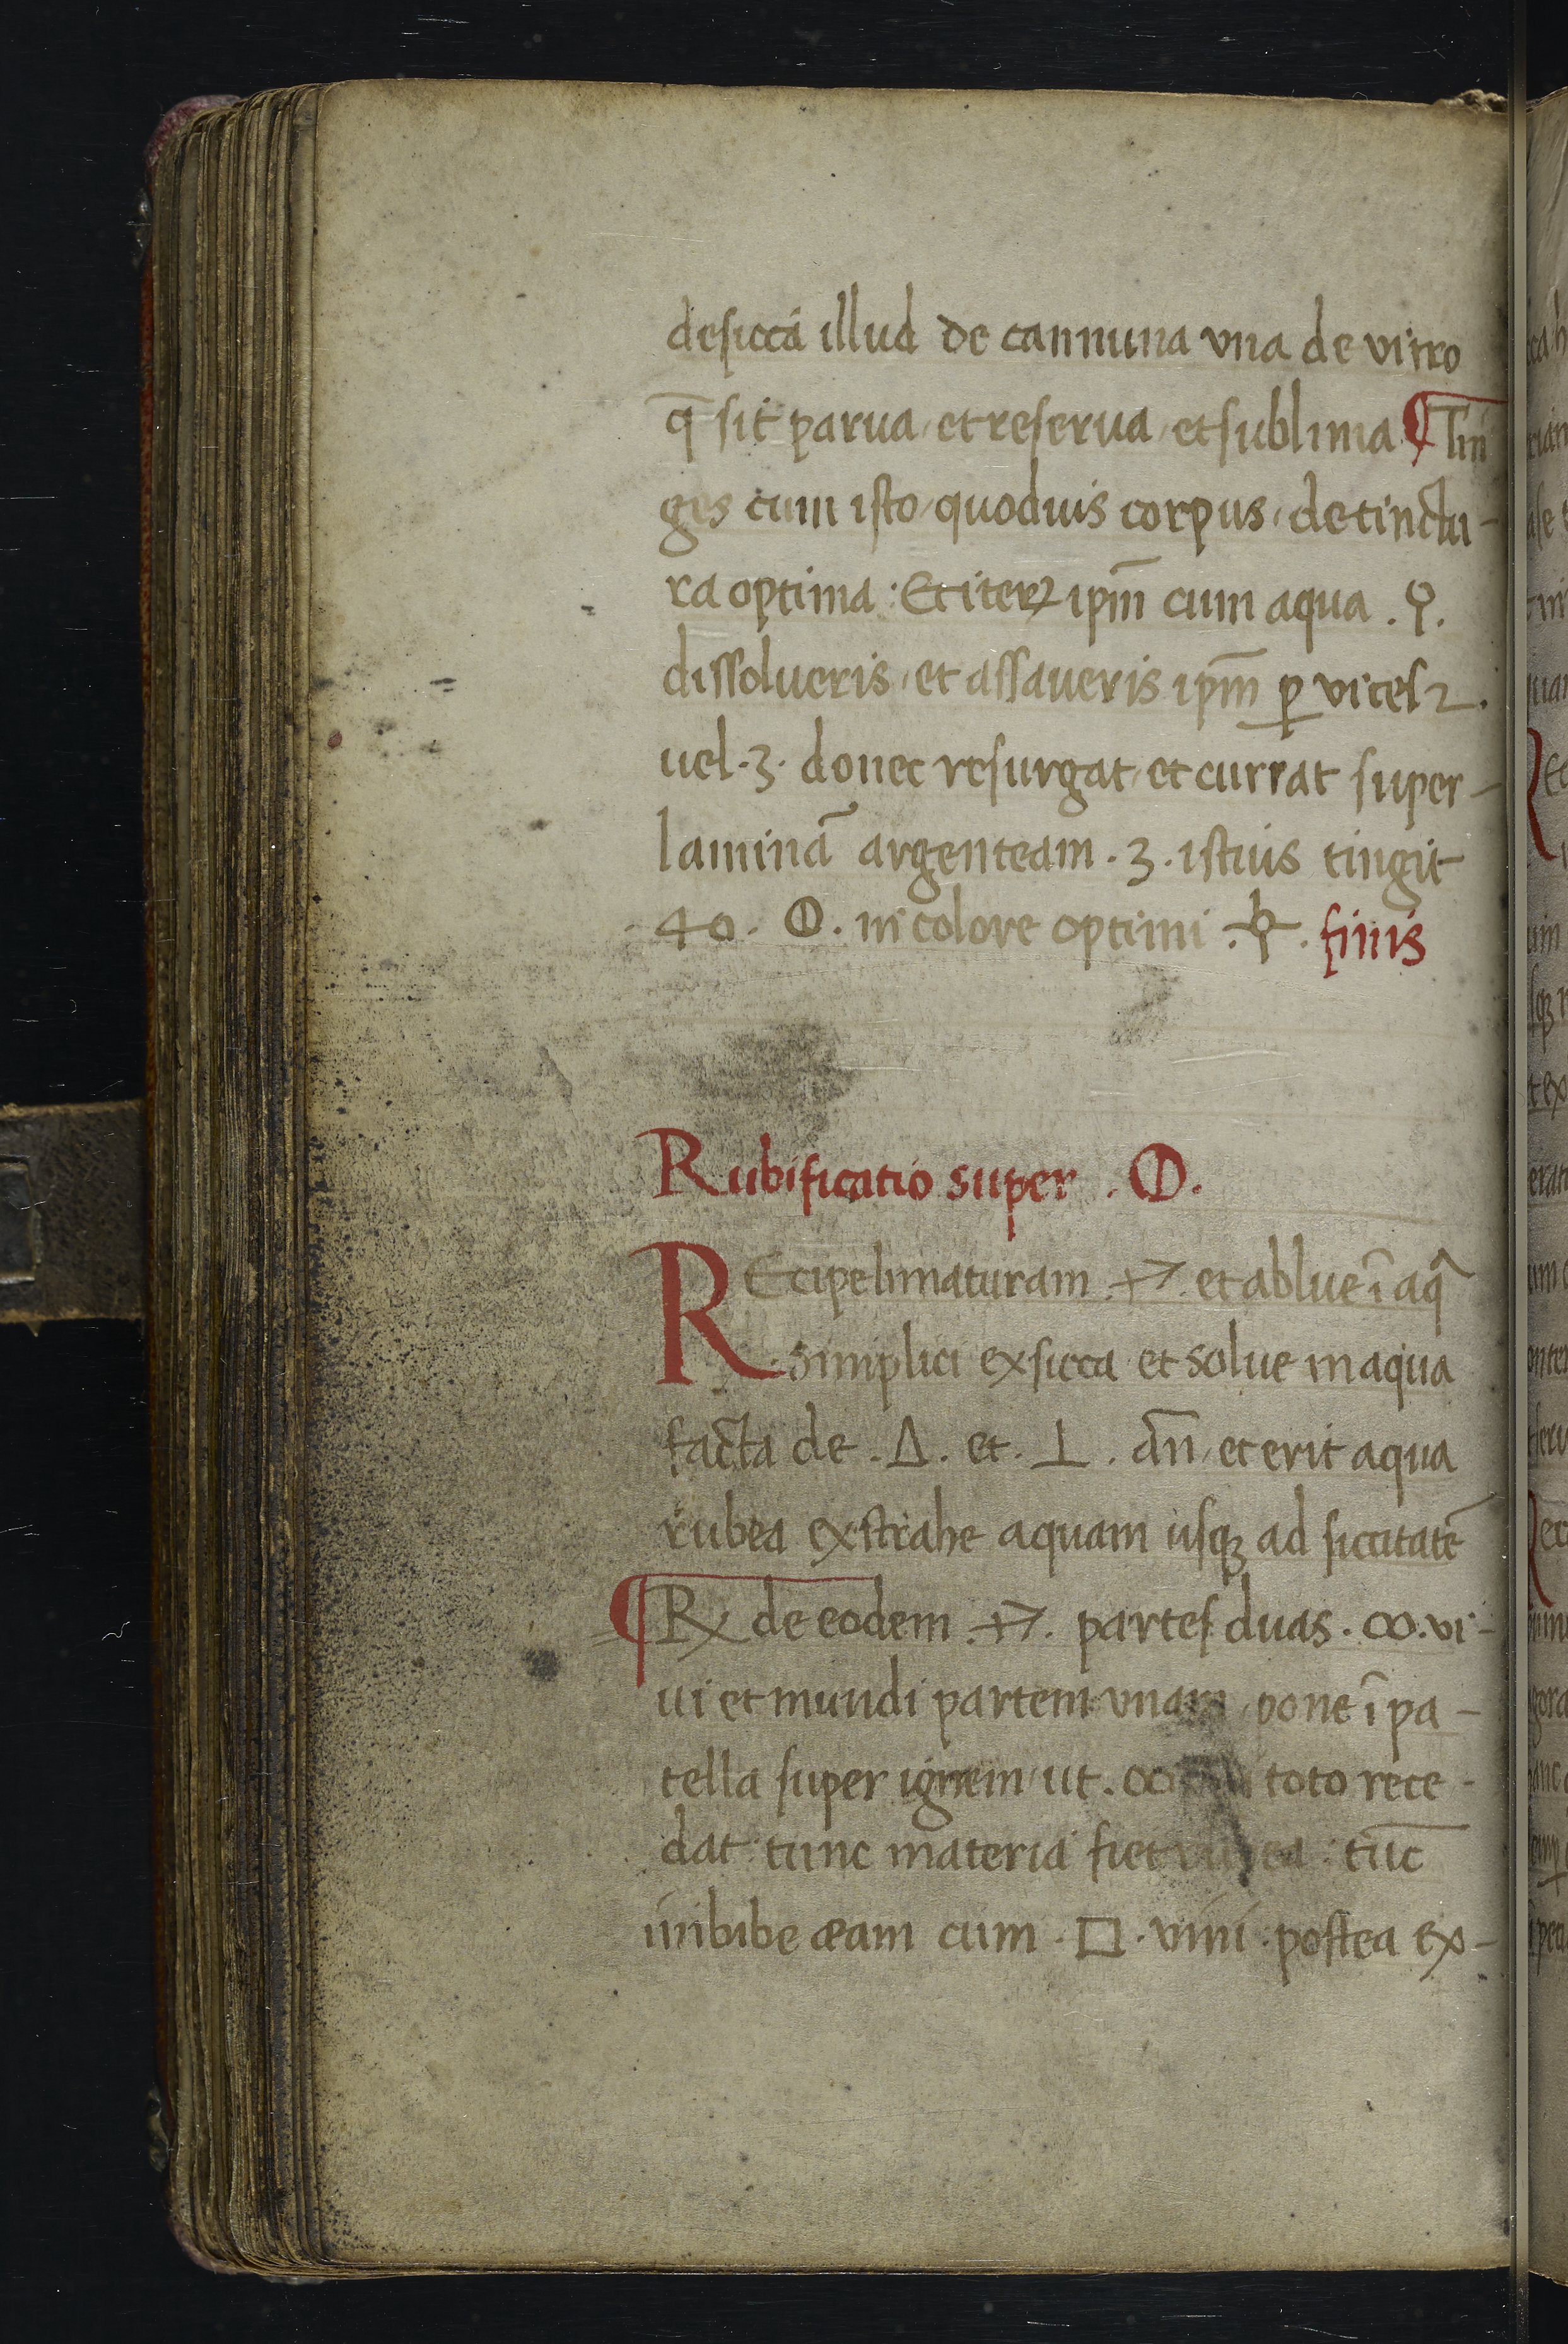 desicca illud de cannuna vna de vitro
q̄ sit parua, et reserua, et sublima. ¶ Tin
ges cum isto, quoduis corpus, de tinctu-
ra optima: Et iterꝝ ipm̄ cum aqua . ☿.
dissolueris, et assaueris ipm̄ ꝑ vices 2.
uel .3. donec resurgat, et currat super-
laminā argenteam .3. istius tingit
40. ⦶. in colore optimi . finis
Rubificatio super . ⦶.
REcipe limaturam . et ablue ī aq̄
simplici exsicca et solue in aqua
facta de . Δ. et . ⊥. ān, et erit aqua
rubea exstrahe aquam usqꝫ ad siccitatē
¶ ℞ de eodem . partes duas . ∞. vi-
ui et mundi partem vnam, pone ī pa-
tella super ignem, ut . ∞ toto rece-
dat: tunc materia fiet : tūc
imbibe æam cum . □. vini . postea ex-